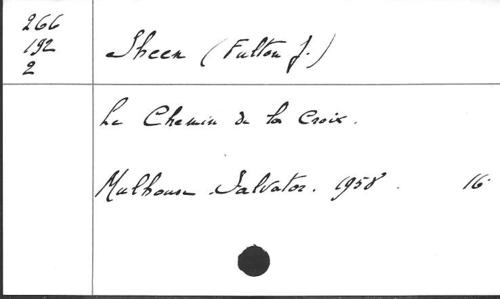 266
192
2
Sheen (Fulton J.)
Le Chemin de la Croix.
Mulhouse Salvator. 1958. 16